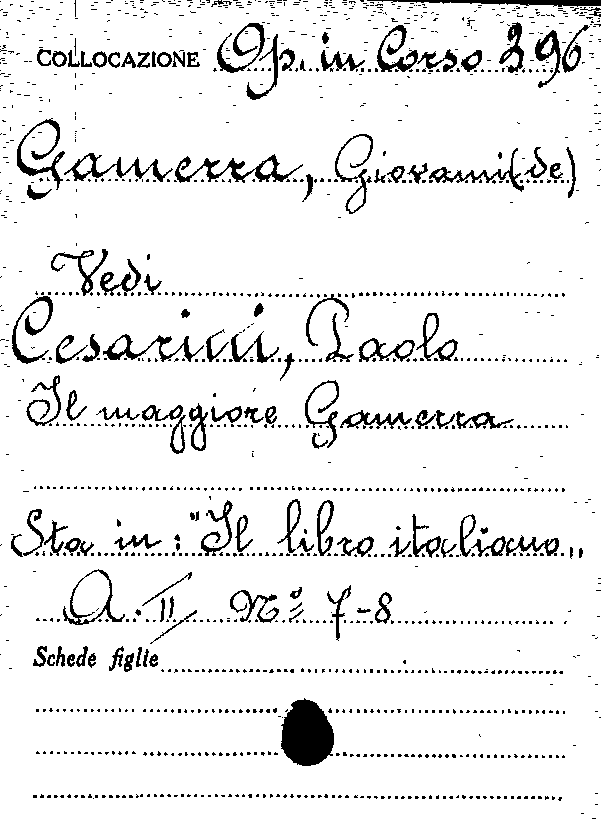 COLLOCAZIONE Op. in Corso 396
Gamerra, Giovanni (de)
Vedi
Cesarini, Paolo
Il maggiore Gamerra
Sta in: "Il libro italiano„
A. II Nº 7-8
Schede figlie